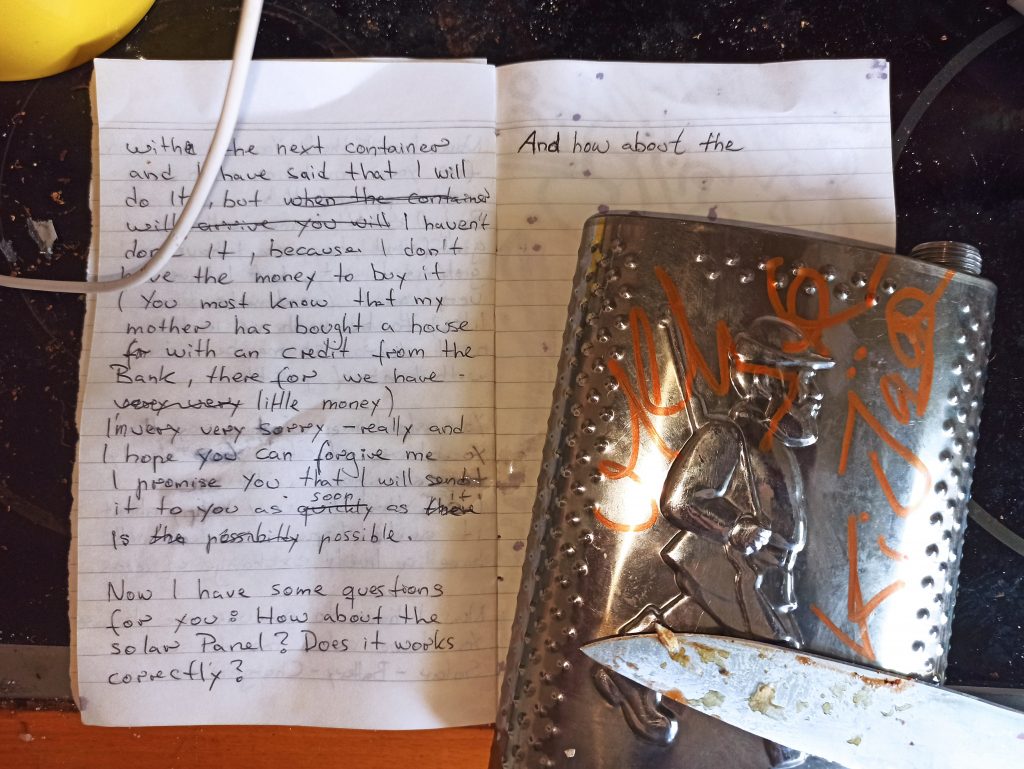 with the next container
and I have said that I will
do it, but when the container
will arrive you will I haven't
done it, because I don't
have the money to buy it
( You must know that my
mother has bought a house
for with an credit from the
Bank, there for we have
very very little money)
I'm very very sorry - really and
I hope you can forgive me
I promise you that I will send it
it to you as quickly soon as there it
is the possibility possible.
Now I have some questions
for you: How about the
solar Panel? Does it works
correctly?
And how about the